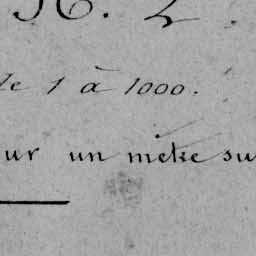 N. 2.
de 1 à 1000.
ur un metre su